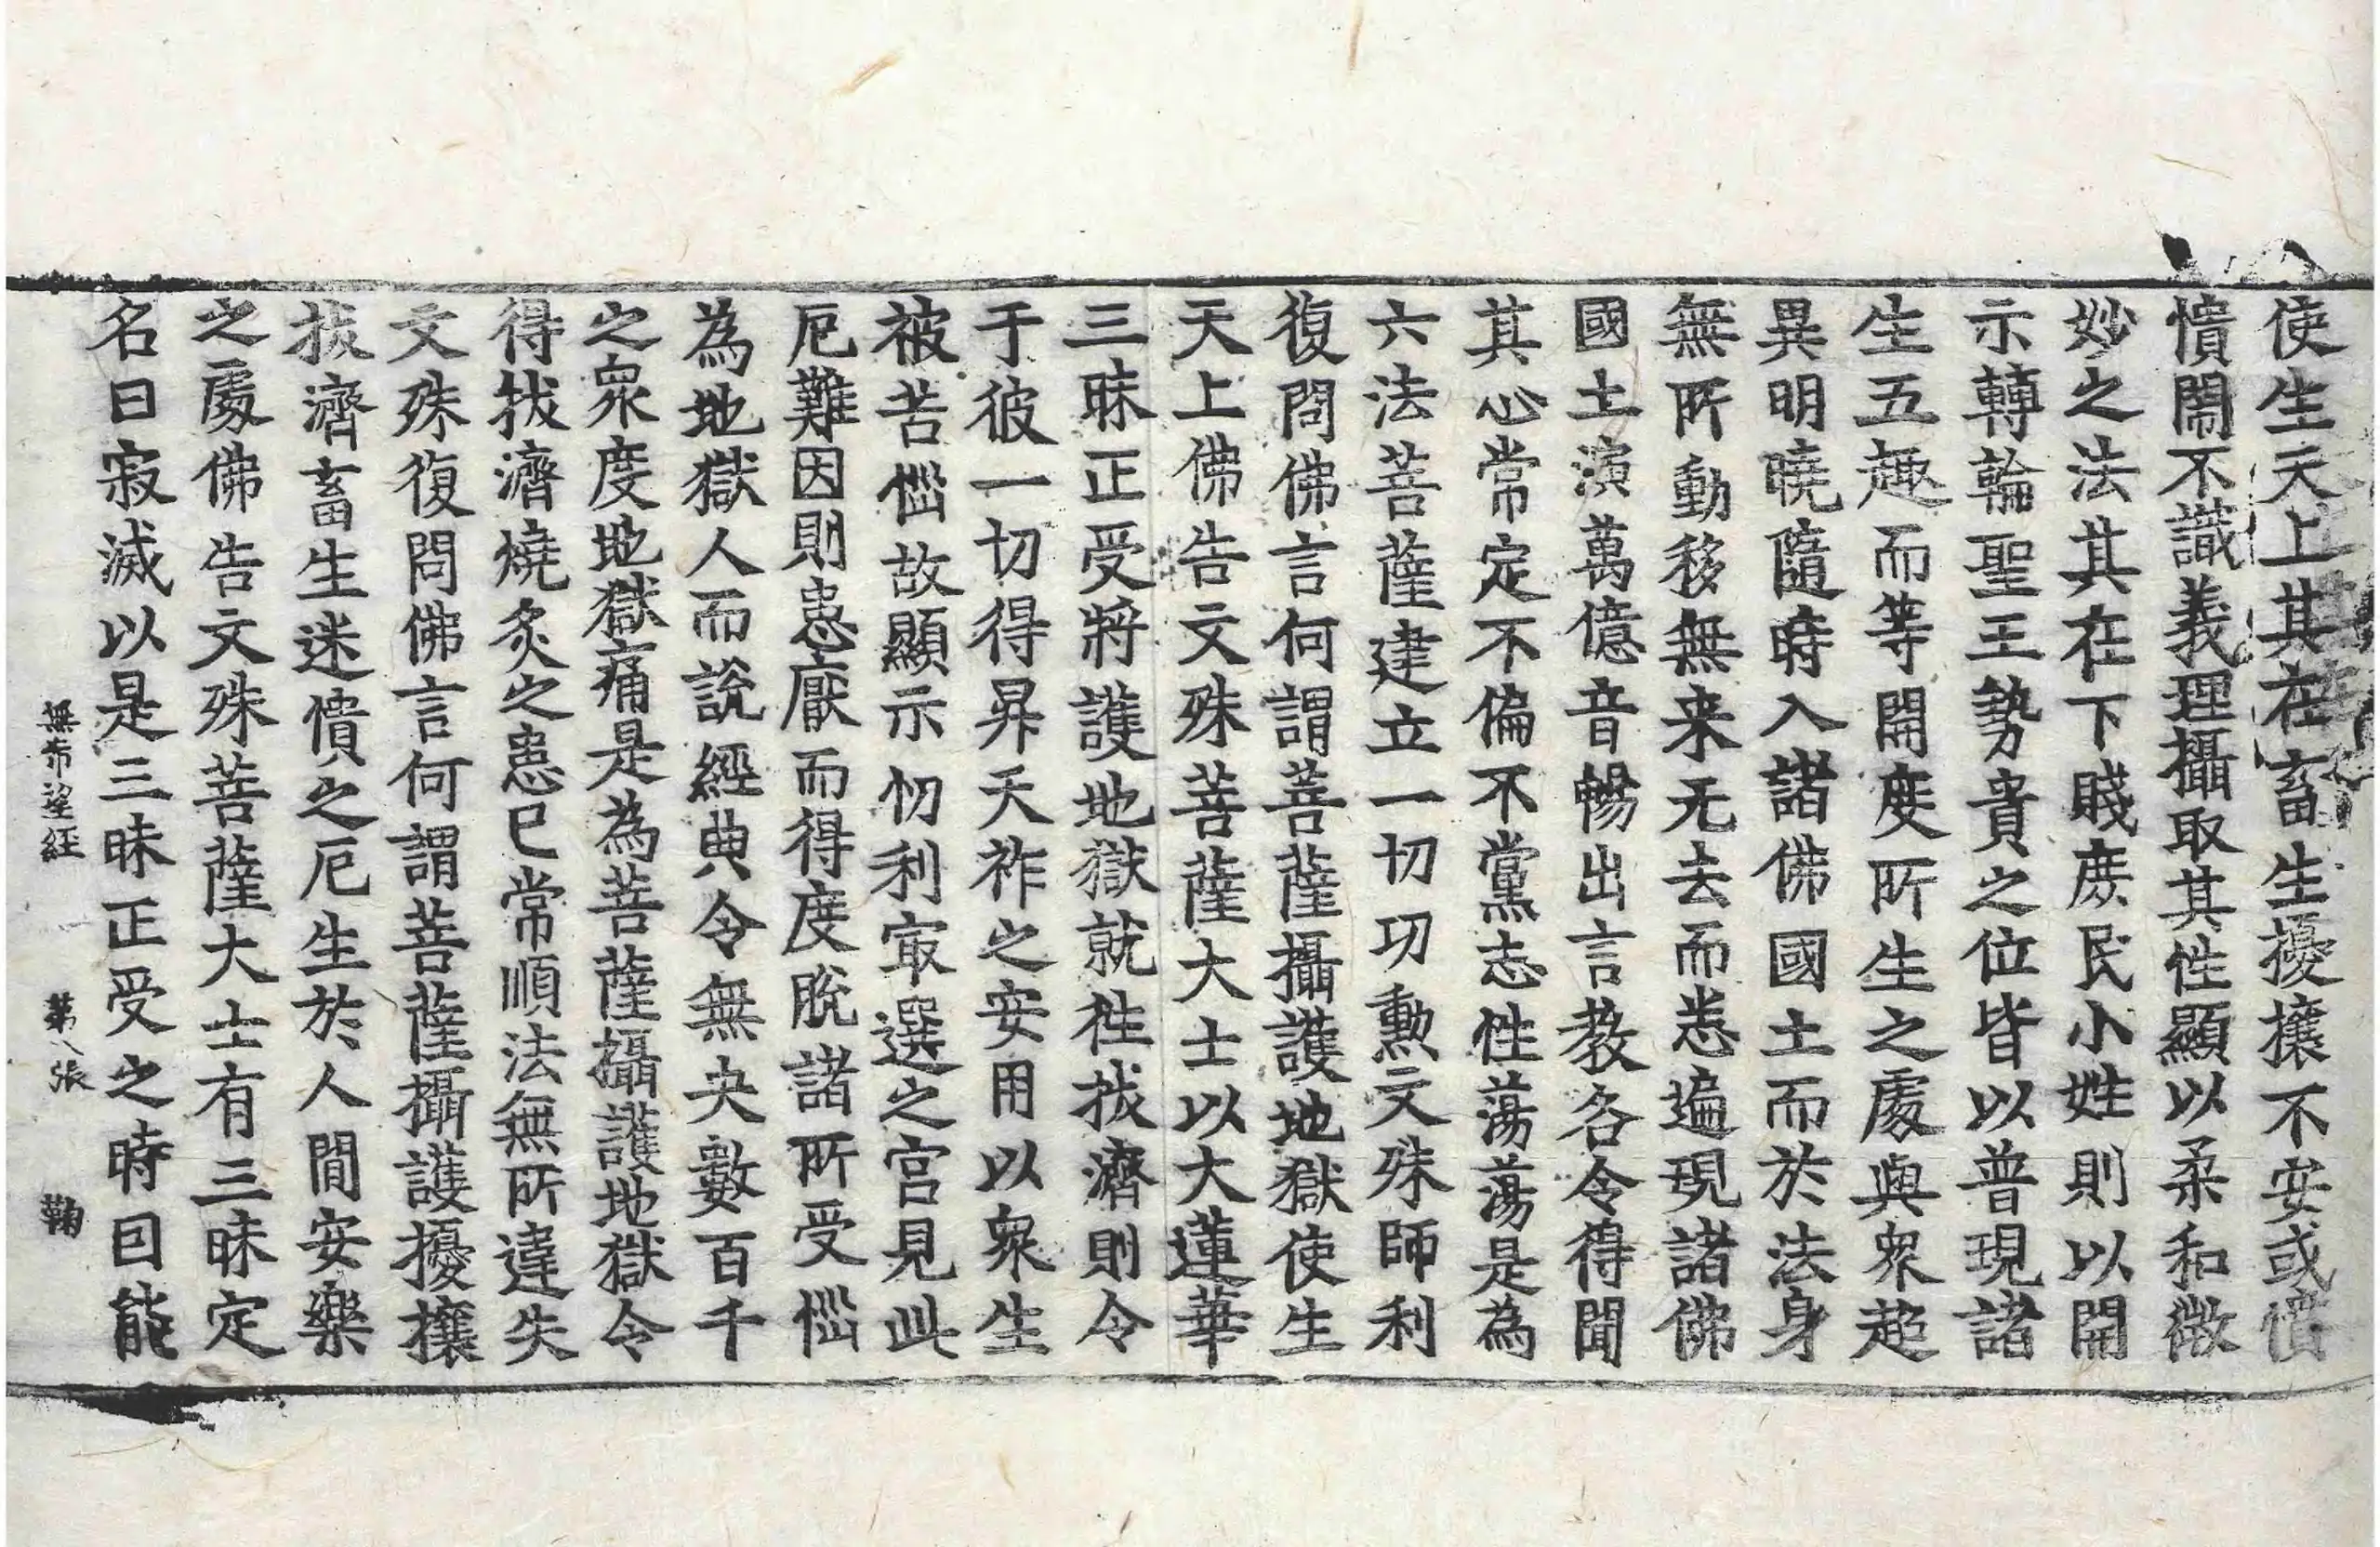 使生天上其在畜生擾攘不安或憒
憒閙不識義理攝取其性顯以柔和微
妙之法其在下賤庶民小姓則以開
示轉輪聖王勢貴之位皆以普現諸
生五趣而等開度所生之處與衆超
異明曉隨時入諸佛國土而於法身
無所動移無来无去而悉遍現諸佛
國土演萬億音暢出言教各令得聞
其心常定不偏不黨志性蕩蕩是為
六法菩薩建立一切功勲文殊師利
復問佛言何謂菩薩攝護地獄使生
天上佛告文殊菩薩大士以大蓮華
三昧正受將護地獄就往拔濟則令
于彼一切得昇天祚之安用以衆生
被苦惱故顯示忉利㝡選之宮見此
厄難因則患厭而得度脫諸所受惱
為地獄人而說經典令無央數百千
之衆度地獄痛是為菩薩攝護地獄令
得拔濟燒炙之患已常順法無所違失
文殊復問佛言何謂菩薩攝護擾攘
拔濟畜生迷憒之厄生於人間安樂
之處佛告文殊菩薩大士有三昧定
名曰寂滅以是三昧正受之時因能
無希望經 第八張 鞠